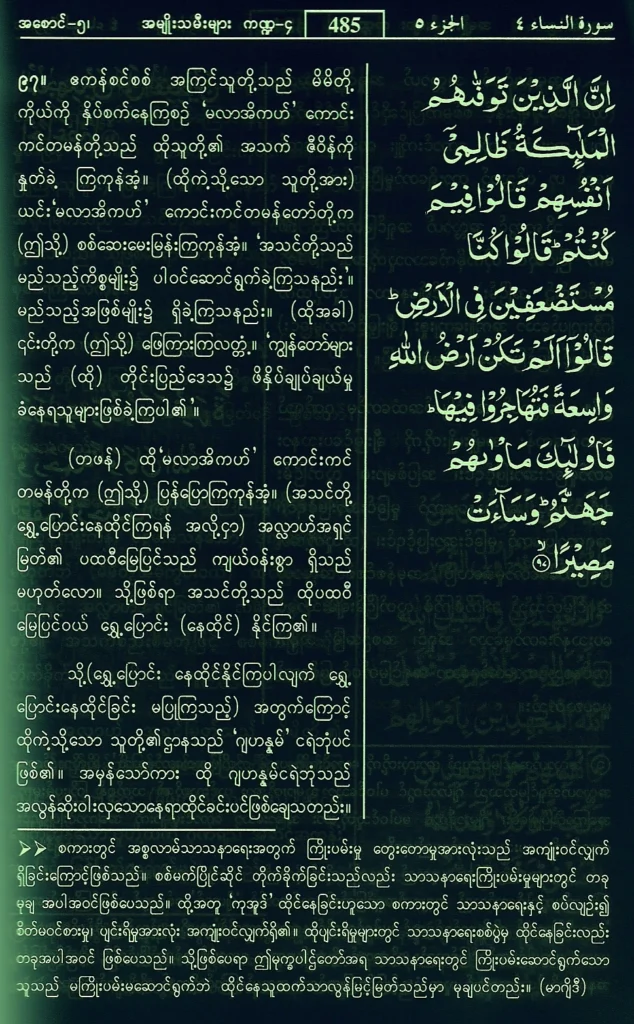 အစောင်-၅၊ အမျိုးသမီးများ ကဏ္ဍ-၄ 485 الجزء ٥ سورة النساء ٤
၉၇။ ဧကန်စင်စစ် အကြင်သူတို့သည် မိမိတို့
ကိုယ်ကို နှိပ်စက်နေကြစဉ် ‘မလာအိကဟ်’ ကောင်း
ကင်တမန်တို့သည် ထိုသူတို့၏ အသက် ဇီဝိန်ကို
နှုတ်ခဲ့ ကြကုန်အံ့။ (ထိုကဲ့သို့သော သူတို့အား)
ယင်း‘မလာအိကဟ်’ ကောင်းကင်တမန်တော်တို့က
(ဤသို့) စစ်ဆေးမေးမြန်းကြကုန်အံ့။ ‘အသင်တို့သည်
မည်သည့်ကိစ္စမျိုး၌ ပါဝင်ဆောင်ရွက်ခဲ့ကြသနည်း’။
မည်သည့်အဖြစ်မျိုး၌ ရှိခဲ့ကြသနည်း။ (ထိုအခါ)
၎င်းတို့က (ဤသို့) ဖြေကြားကြလတ္တံ့။ ‘ကျွန်တော်များ
သည် (ထို) တိုင်းပြည်ဒေသ၌ ဖိနှိပ်ချုပ်ချယ်မှု
ခံနေရသူများဖြစ်ခဲ့ကြပါ၏’။
(တဖန်) ထို‘မလာအိကဟ်’ ကောင်းကင်
တမန်တို့က (ဤသို့) ပြန်ပြောကြကုန်အံ့။ (အသင်တို့
ရွှေ့ပြောင်းနေထိုင်ကြရန် အလို့ငှာ) အလ္လာဟ်အရှင်
မြတ်၏ ပထဝီမြေပြင်သည် ကျယ်ဝန်းစွာ ရှိသည်
မဟုတ်လော။ သို့ဖြစ်ရာ အသင်တို့သည် ထိုပထဝီ
မြေပြင်ဝယ် ရွှေ့ပြောင်း (နေထိုင်) နိုင်ကြ၏။
သို့(ရွှေ့ပြောင်း နေထိုင်နိုင်ကြပါလျက် ရွှေ့
ပြောင်းနေထိုင်ခြင်း မပြုကြသည့်) အတွက်ကြောင့်
ထိုကဲ့သို့သော သူတို့၏ဌာနသည် ‘ဂျဟန္နမ်’ ငရဲဘုံပင်
ဖြစ်၏။ အမှန်သော်ကား ထို ဂျဟန္နမ်ငရဲဘုံသည်
အလွန်ဆိုးဝါးလှသောနေရာထိုင်ခင်းပင်ဖြစ်ချေသတည်း။
اِنَّ الَّذِيْنَ تَوَفّٰىهُمُ
الْمَلٰٓئِكَةُ ظَالِمِيْٓ
اَنْفُسِهِمْ قَالُوْا فِيْمَ
كُنْتُمْ ؕ قَالُوْا كُنَّا
مُسْتَضْعَفِيْنَ فِى الْاَرْضِ ؕ
قَالُوْٓا اَلَمْ تَكُنْ اَرْضُ اللهِ
وَاسِعَةً فَتُهَاجِرُوْا فِيْهَا ؕ
فَاُولٰٓئِكَ مَاْوٰىهُمْ
جَهَنَّمُ ؕ وَسَآءَتْ
مَصِيْرًا ۙ ٩٧
➢➢ စကားတွင် အစ္စလာမ်သာသနာရေးအတွက် ကြိုးပမ်းမှု တွေးတောမှုအားလုံးသည် အကျုံးဝင်လျှက်
ရှိခြင်းကြောင့်ဖြစ်သည်။ စစ်မက်ပြိုင်ဆိုင် တိုက်ခိုက်ခြင်းသည်လည်း သာသနာရေးကြိုးပမ်းမှုများတွင် တခု
မျှ အပါအဝင်ဖြစ်ပေသည်။ ထို့အတူ ‘ကုအူဒ်’ ထိုင်နေခြင်းဟူသော စကားတွင် သာသနာရေးနှင့် စပ်လျဉ်း၍
စိတ်မဝင်စားမှု၊ ပျင်းရိမှုအားလုံး အကျုံးဝင်လျှက်ရှိ၏။ ထိုပျင်းရိမှုများတွင် သာသနာရေးစစ်ပွဲမှ ထိုင်နေခြင်းလည်း
တခုအပါအဝင် ဖြစ်ပေသည်။ သို့ဖြစ်ပေရာ ဤမုက္ခပါဌ်တော်အရ သာသနာရေးတွင် ကြိုးပမ်းဆောင်ရွက်သော
သူသည် မကြိုးပမ်းမဆောင်ရွက်ဘဲ ထိုင်နေသူထက်သာလွန်မြင့်မြတ်သည်မှာ မုချပင်တည်း။ (မာဂျိဒီ)